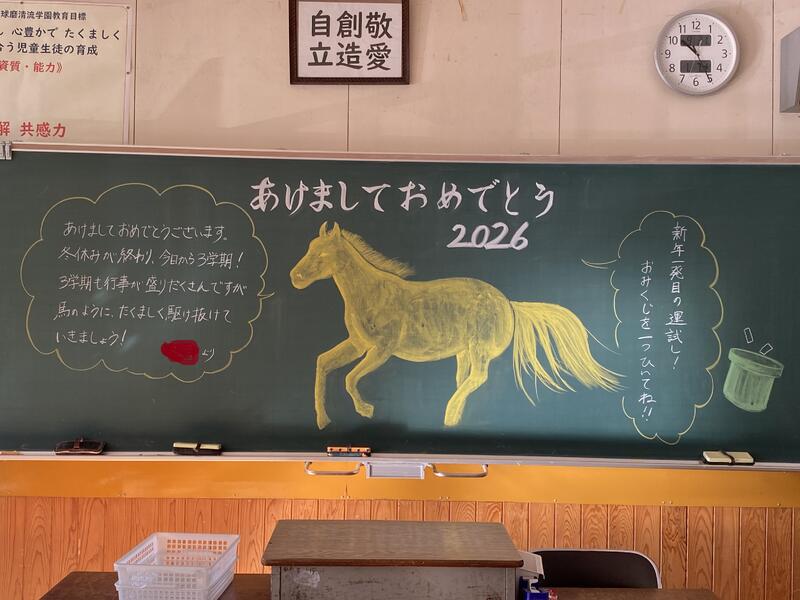 球磨清流学園教育目標
心豊かで たくましく
合う児童生徒の育成
資質・能力》
解 共感力
自創敬
立造愛
あけましておめでとう
2026
あけましておめでとうございます。
冬休みが終わり、今日から3学期！
3学期も行事が盛りだくさんですが
馬のように、たくましく駆け抜けて
いきましょう！
より
新年一発目の運試し！
おみくじを一つひいてね!!
12
1
2
3
4
5
6
7
8
9
10
11